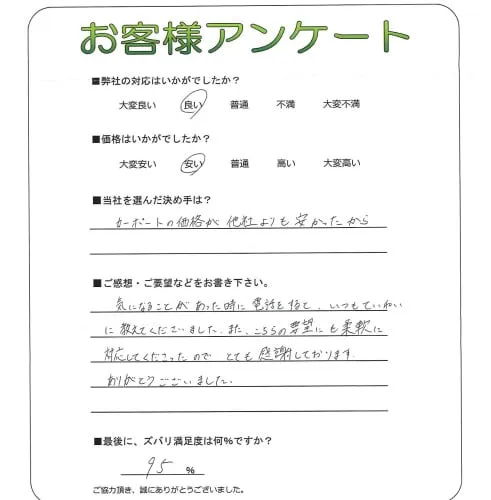 お客様アンケート
■弊社の対応はいかがでしたか？
大変良い 良い 普通 不満 大変不満
■価格はいかがでしたか？
大変安い 安い 普通 高い 大変高い
■当社を選んだ決め手は？
カーポートの価格が他社よりも安かったから
■ご感想・ご要望などをお書き下さい。
気になることがあった時に電話を捨て、いつもていねい
に教えてくださいました。また、こちらの要望にも柔軟に
対応してくださったので とても感謝しております。
ありがとうございました。
■最後に、ズバリ満足度は何％ですか？
95 ％
ご協力頂き、誠にありがとうございました。